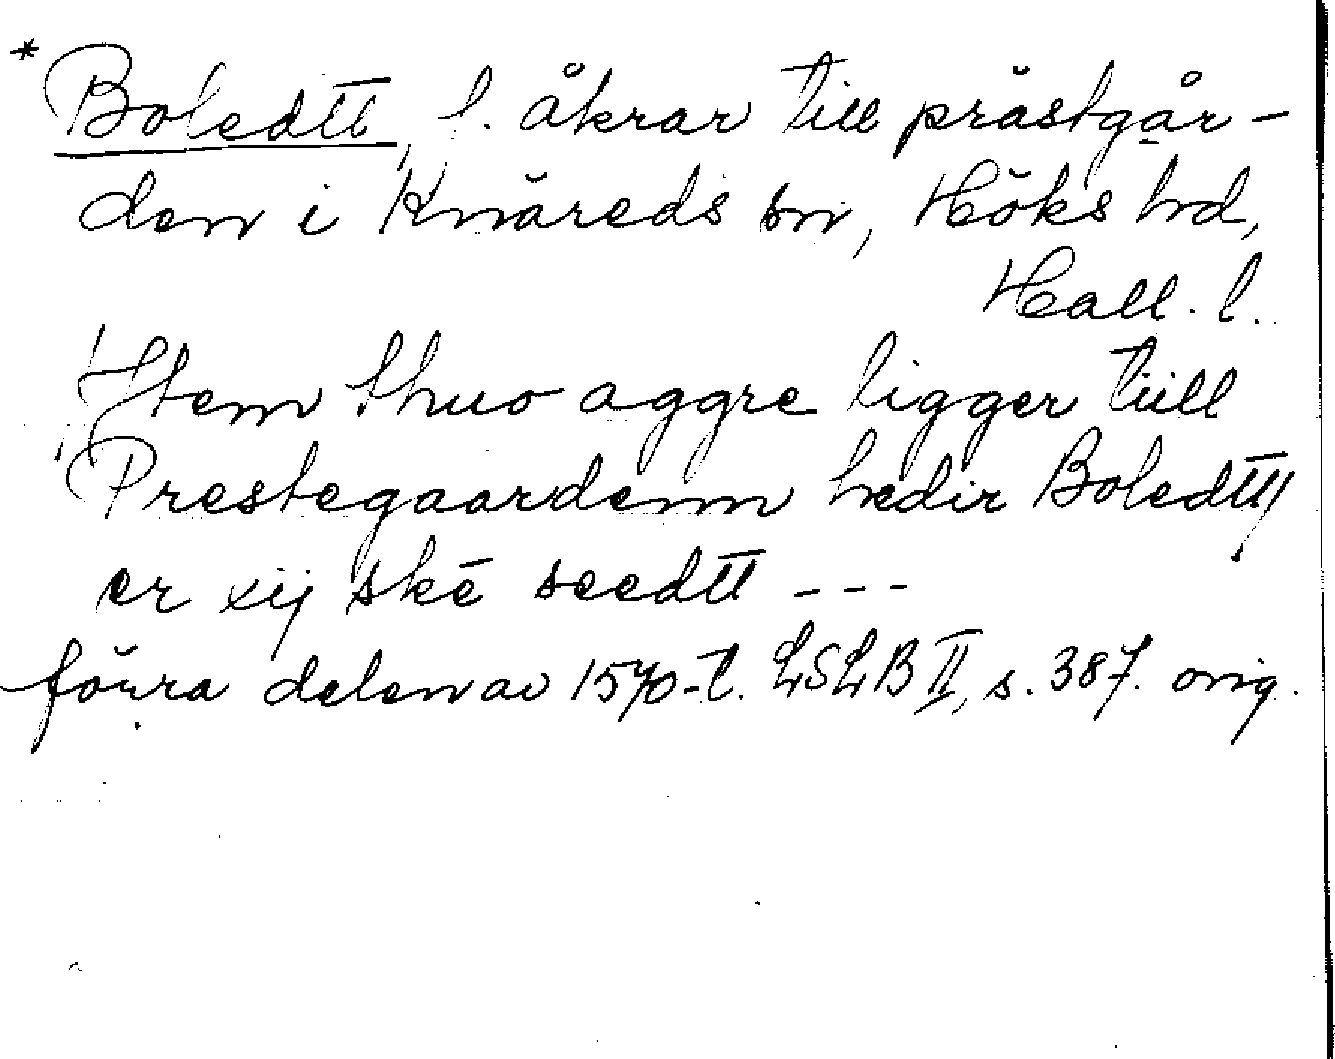 *Boledtt, f. åkrar till prästgår-
den i Knäreds sn, Höks hd,
Hall. l.
Item thuo aggre ligger tiill
Prestegaardenn hedir Boledtt/
er xij skē seedtt ---
förra delen av 1570-t. LSLB II, s. 387. orig.